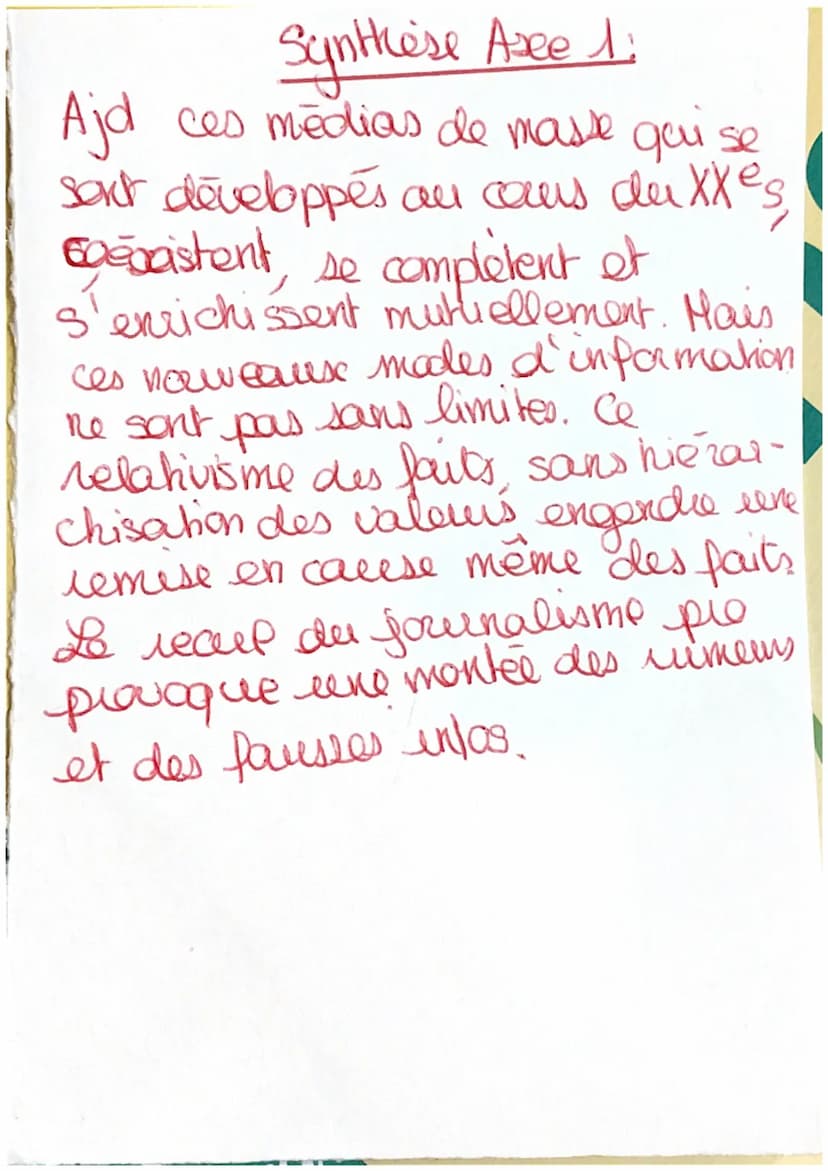 Synthèse Axe 1:
Ajd ces médias de masse qui se
sont développés au cours du XXe s,
coéxistent, se complètent et
s'enrichissent mutuellement. Mais
ces nouveaux modes d'information
ne sont pas sans limites. Ce
relativisme des faits, sans hiérar-
chisation des valeurs engendre une
remise en cause même des faits.
Le recul du journalisme pro
provoque une montée des rumeurs
et des fausses infos.